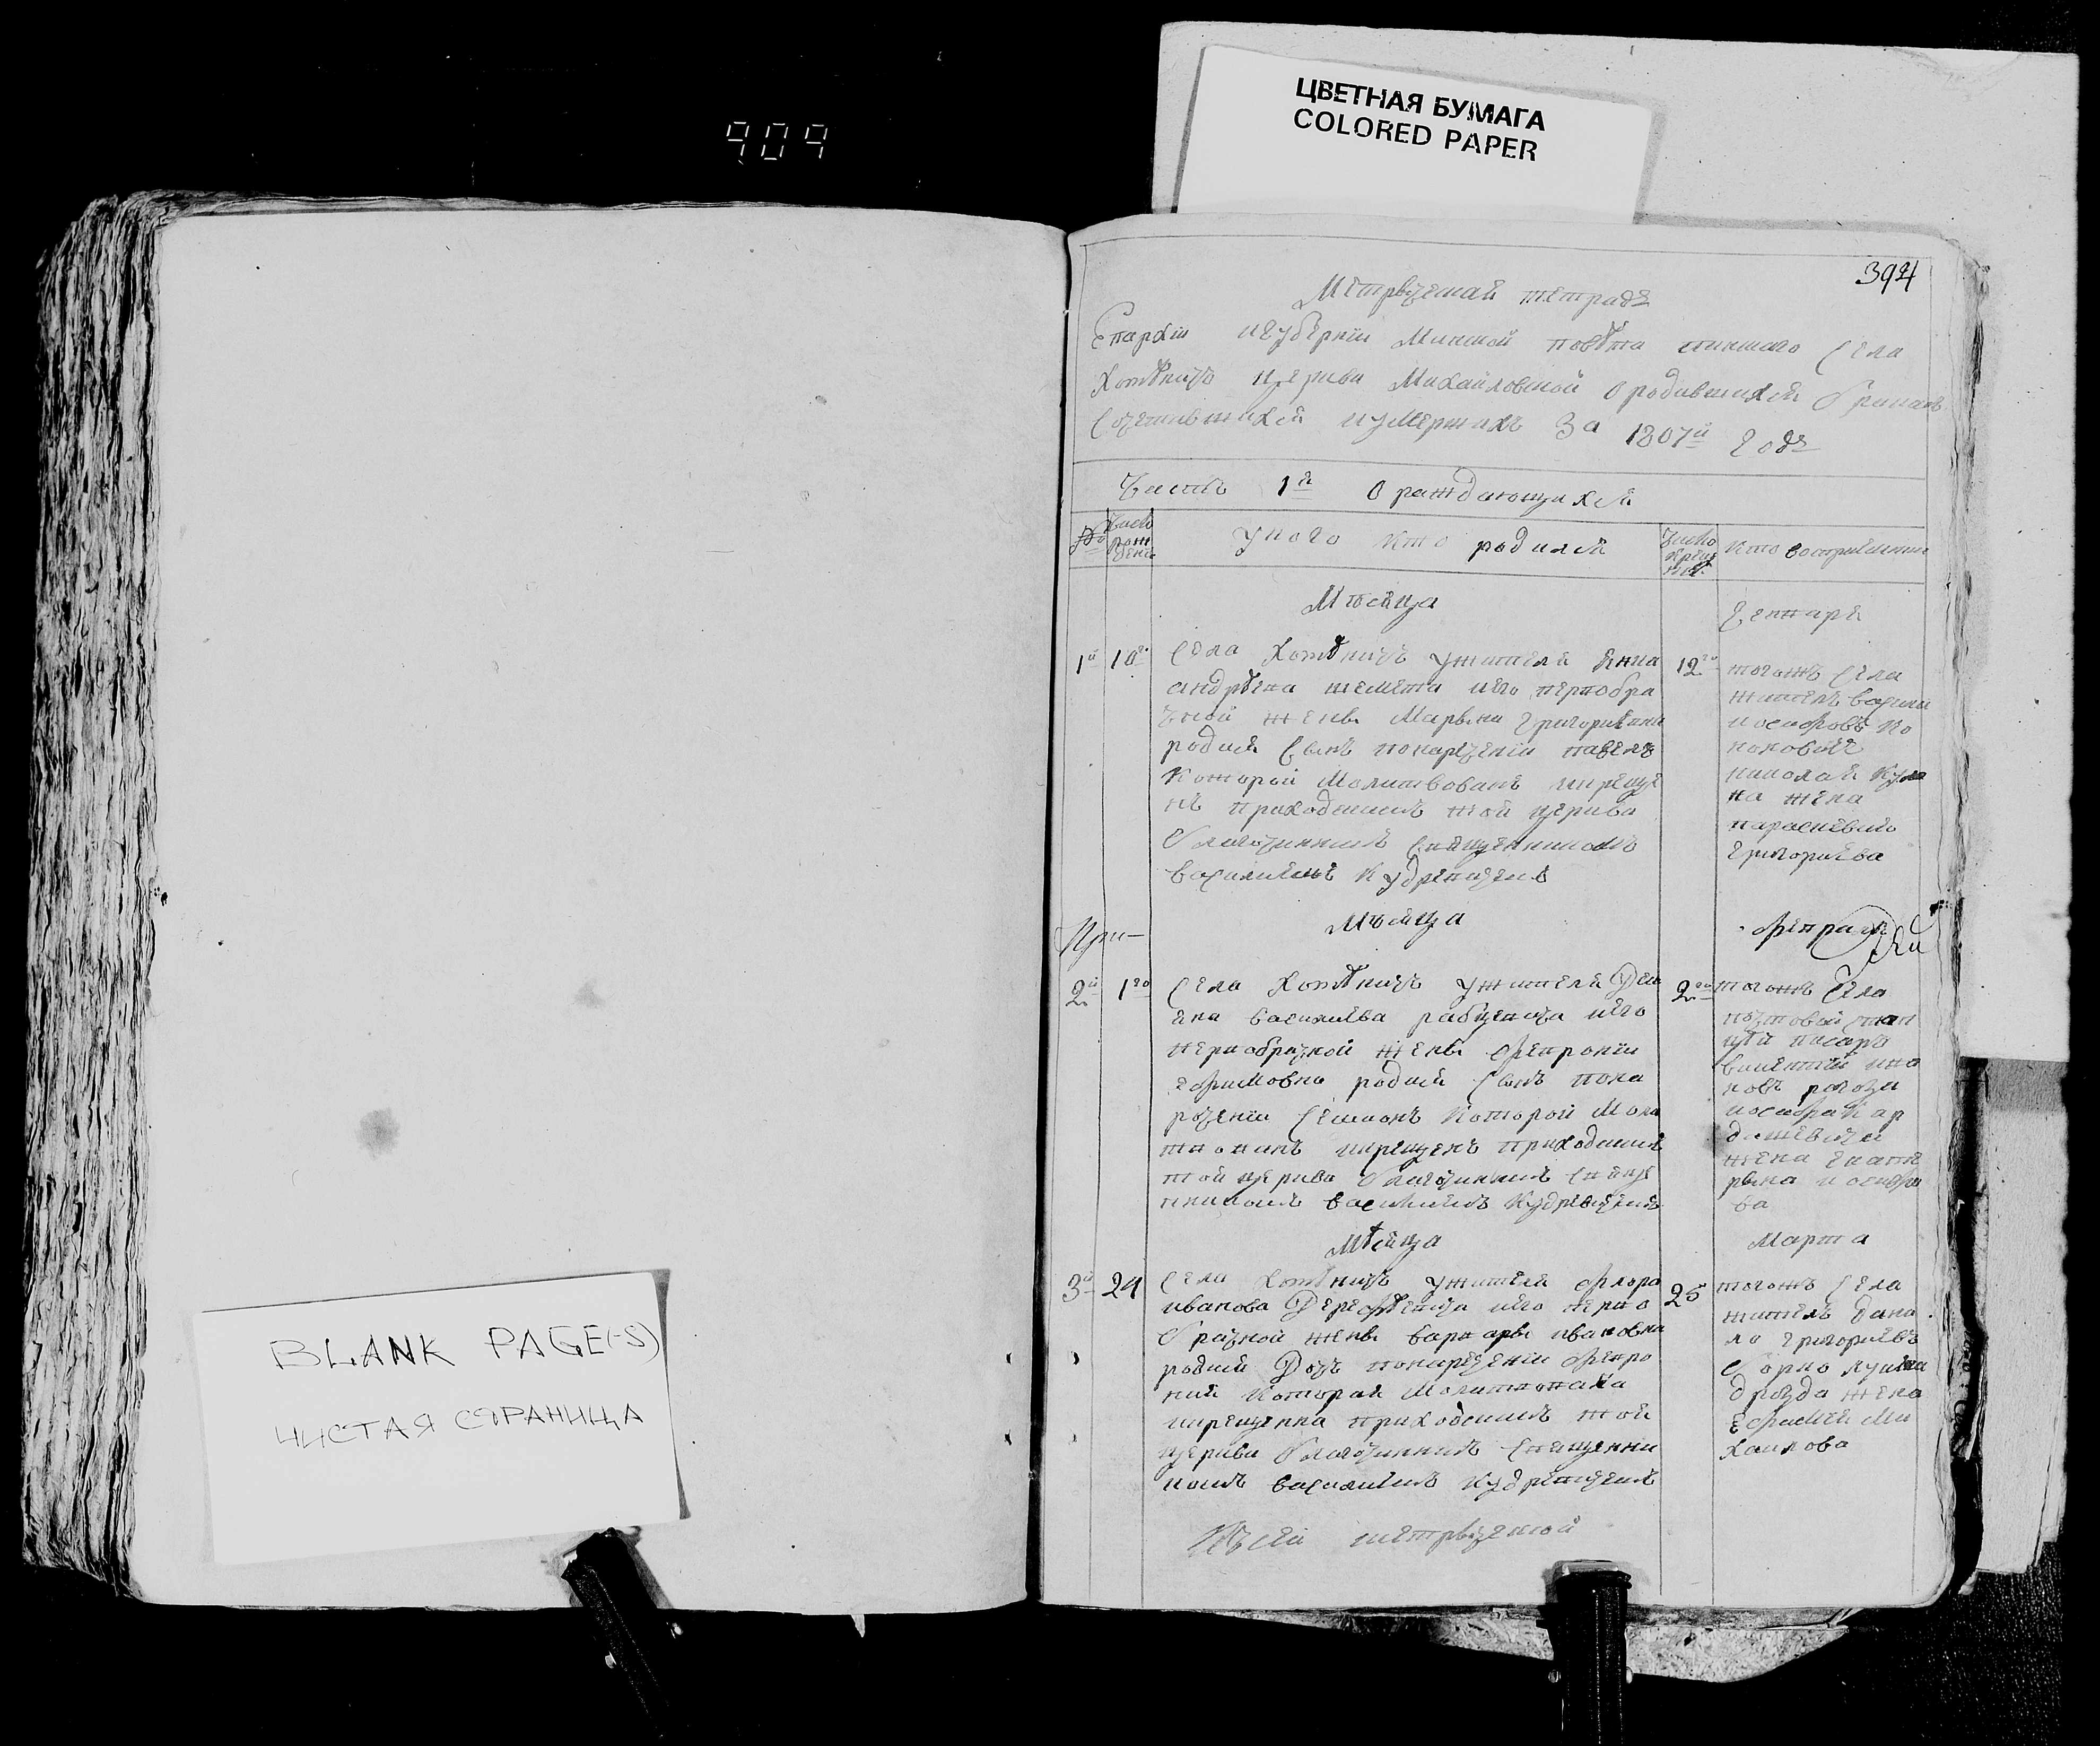 909
ЦВЕТНАЯ БУМАГА
COLORED PAPER
394
Метрическая тетрадь
Епархіи игуберніи Минской повѣта пинскаго Села
Хотѣничъ церкви Михайловской Ородившихся
Сочетавшихся иумершихъ За 1807й Годъ
Часть 1я О рождающихся
Число рожденія
Укого кто родился
Число крещенія
Кто восприемники
Мѣсяца Генваря
1й 10го
Села Хотѣничъ ужителя
андрѣева шемета иего первобра
чной жены Марьяны григориевни
родися Сынъ понаречении павелъ
Которой Молитвованъ икреще
нъ приходскимъ той церкви
благочиннымъ Священникомъ
василиемъ Кудревичемъ
12го
тогожъ Села
житель василий
иосифовъ Ко
коновичъ
николая
на жена
параскевия
григориева
Мѣсяца февраля
2й 1го
Села Хотѣничъ ужителя Деми
яна василиева рабцевича иего
первобрачной жены февронии
ефимовны родися Сынъ пона
речении Семионъ Которой Моли
твованъ икрещенъ приходскимъ
той церкви благочиннымъ Свяще
нникомъ василиемъ Кудревичемъ
2го
тогожъ Села
почтовой стан
ции писаръ
викентий ива
новъ рогоза
иосифа Кар
дашевича
жена екате
рина иосифо
ва
Мѣсяца Марта
3й 24
Села Хотѣничъ ужителя флора
иванова иего перво
брачной жены варвары ивановни
родися Дочъ понаречении февро
ния Которая Молитвованна
икрещенна приходскимъ той
церкви благочиннымъ Священни
комъ василиемъ Кудревичемъ
25
тогожъ Села
житель дани
ло григориевъ
дрозда жена
ефимия Ми
хаилова
Ксей метрической
BLANK PAGE(-S)
ЧИСТАЯ СТРАНИЦА